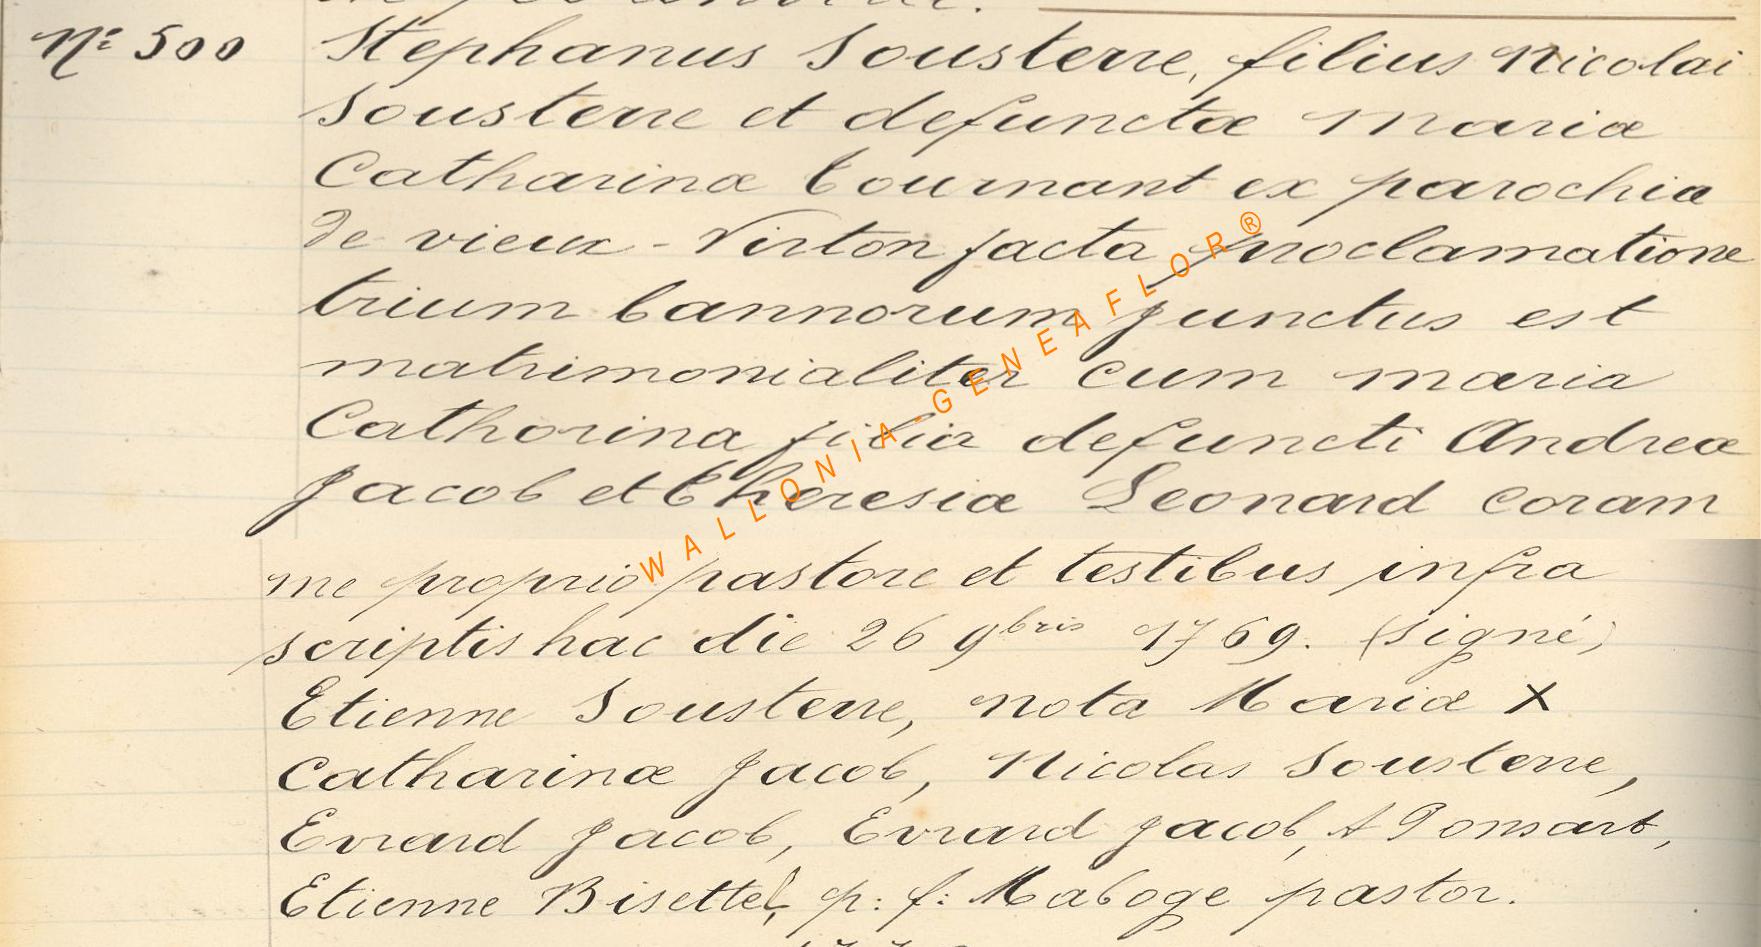 Nº 500
Stephanus Sousterre, filius Nicolai
Sousterre et defunctæ Mariæ
Catharinæ Tournant ex parochia
de vieux-Virton facta proclamatione
trium bannorum junctus est
matrimonialiter cum maria
Catharina filia defuncti Andreæ
Jacob et Theresiæ Leonard coram
me proprio pastore et testibus infra
scriptis hac die 26 9bris 1769. (signé)
Etienne Sousterre, nota Mariæ X
Catharinæ Jacob, Nicolas Sousterre,
Evrard Jacob, Evrard Jacob, A Ponsart,
Etienne p: f: Maboge pastor.
WALLONIA-GENEAFLOR®